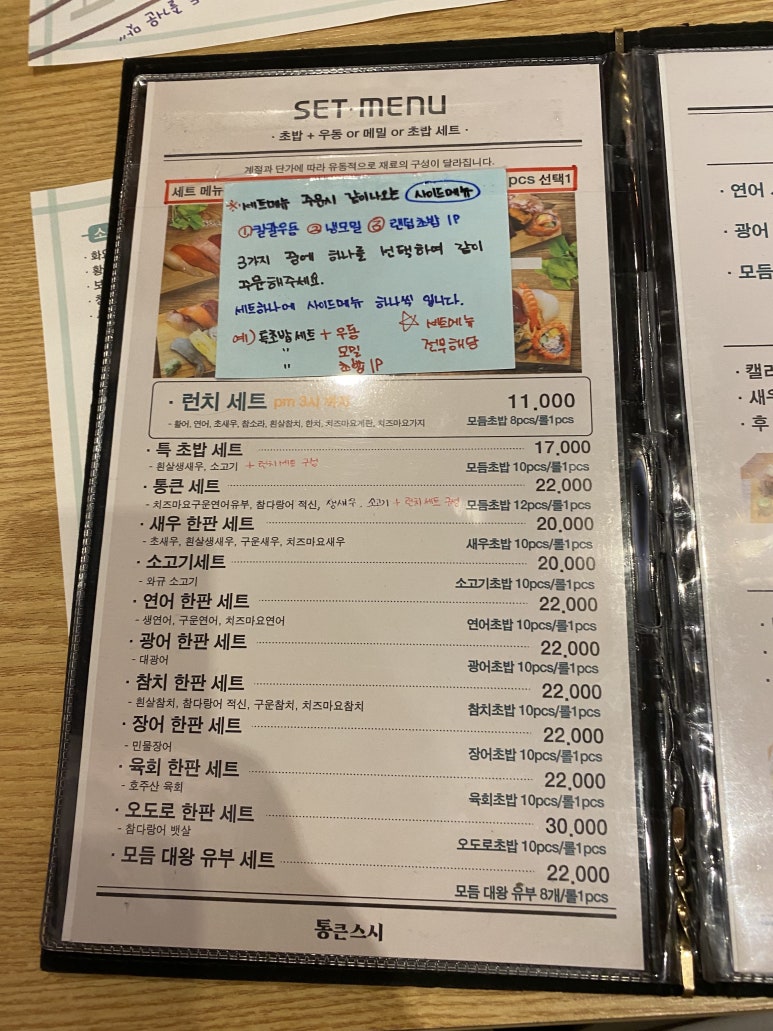 SET·MENU
· 초밥 + 우동 or 메밀 or 초밥 세트 ·
계절과 단가에 따라 유동적으로 재료의 구성이 달라집니다.
세트 메뉴
pcs 선택1
※ 세트메뉴 주문시 같이나오는 사이드메뉴
① 칼칼우동 ② 냉모밀 ③ 랜덤초밥 1P
3가지 중에 하나를 선택하여 같이
주문해주세요.
세트하나에 사이드메뉴 하나씩 입니다.
예) 특초밥세트 + 우동
" 모밀
" 초밥 1P
☆ 세트메뉴
전부해당
· 런치 세트 pm 3시 까지 11,000
- 활어, 연어, 초새우, 참소라, 흰살참치, 한치, 치즈마요계란, 치즈마요가지 모듬초밥 8pcs/롤1pcs
· 특 초밥 세트 17,000
- 흰살생새우, 소고기 + 런치세트 구성 모듬초밥 10pcs/롤1pcs
· 통큰 세트 22,000
- 치즈마요구운연어유부, 참다랑어 적신, 생새우, 소고기 + 런치세트 구성 모듬초밥 12pcs/롤1pcs
· 새우 한판 세트 20,000
- 초새우, 흰살생새우, 구운새우, 치즈마요새우 새우초밥 10pcs/롤1pcs
· 소고기세트 20,000
- 와규 소고기 소고기초밥 10pcs/롤1pcs
· 연어 한판 세트 22,000
- 생연어, 구운연어, 치즈마요연어 연어초밥 10pcs/롤1pcs
· 광어 한판 세트 22,000
- 대광어 광어초밥 10pcs/롤1pcs
· 참치 한판 세트 22,000
- 흰살참치, 참다랑어 적신, 구운참치, 치즈마요참치 참치초밥 10pcs/롤1pcs
· 장어 한판 세트 22,000
- 민물장어 장어초밥 10pcs/롤1pcs
· 육회 한판 세트 22,000
- 호주산 육회 육회초밥 10pcs/롤1pcs
· 오도로 한판 세트 30,000
- 참다랑어 뱃살 오도로초밥 10pcs/롤1pcs
· 모듬 대왕 유부 세트 22,000
모듬 대왕 유부 8개/롤1pcs
통큰스시
· 연어
· 광어
· 모듬
· 새우
· 후